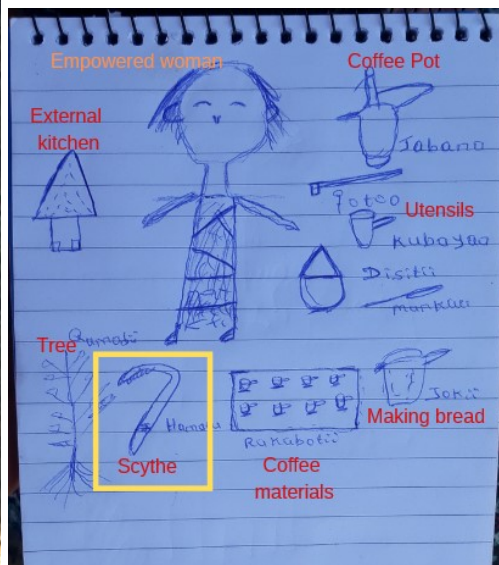 Empowered woman
Coffee Pot
External
kitchen
Jabana
Qotoo
Utensils
Kubayaa
Disitii
mankaa
Tree
Qamalii
Hamaru
Scythe
Rakabotii
Coffee
materials
Jokii
Making bread